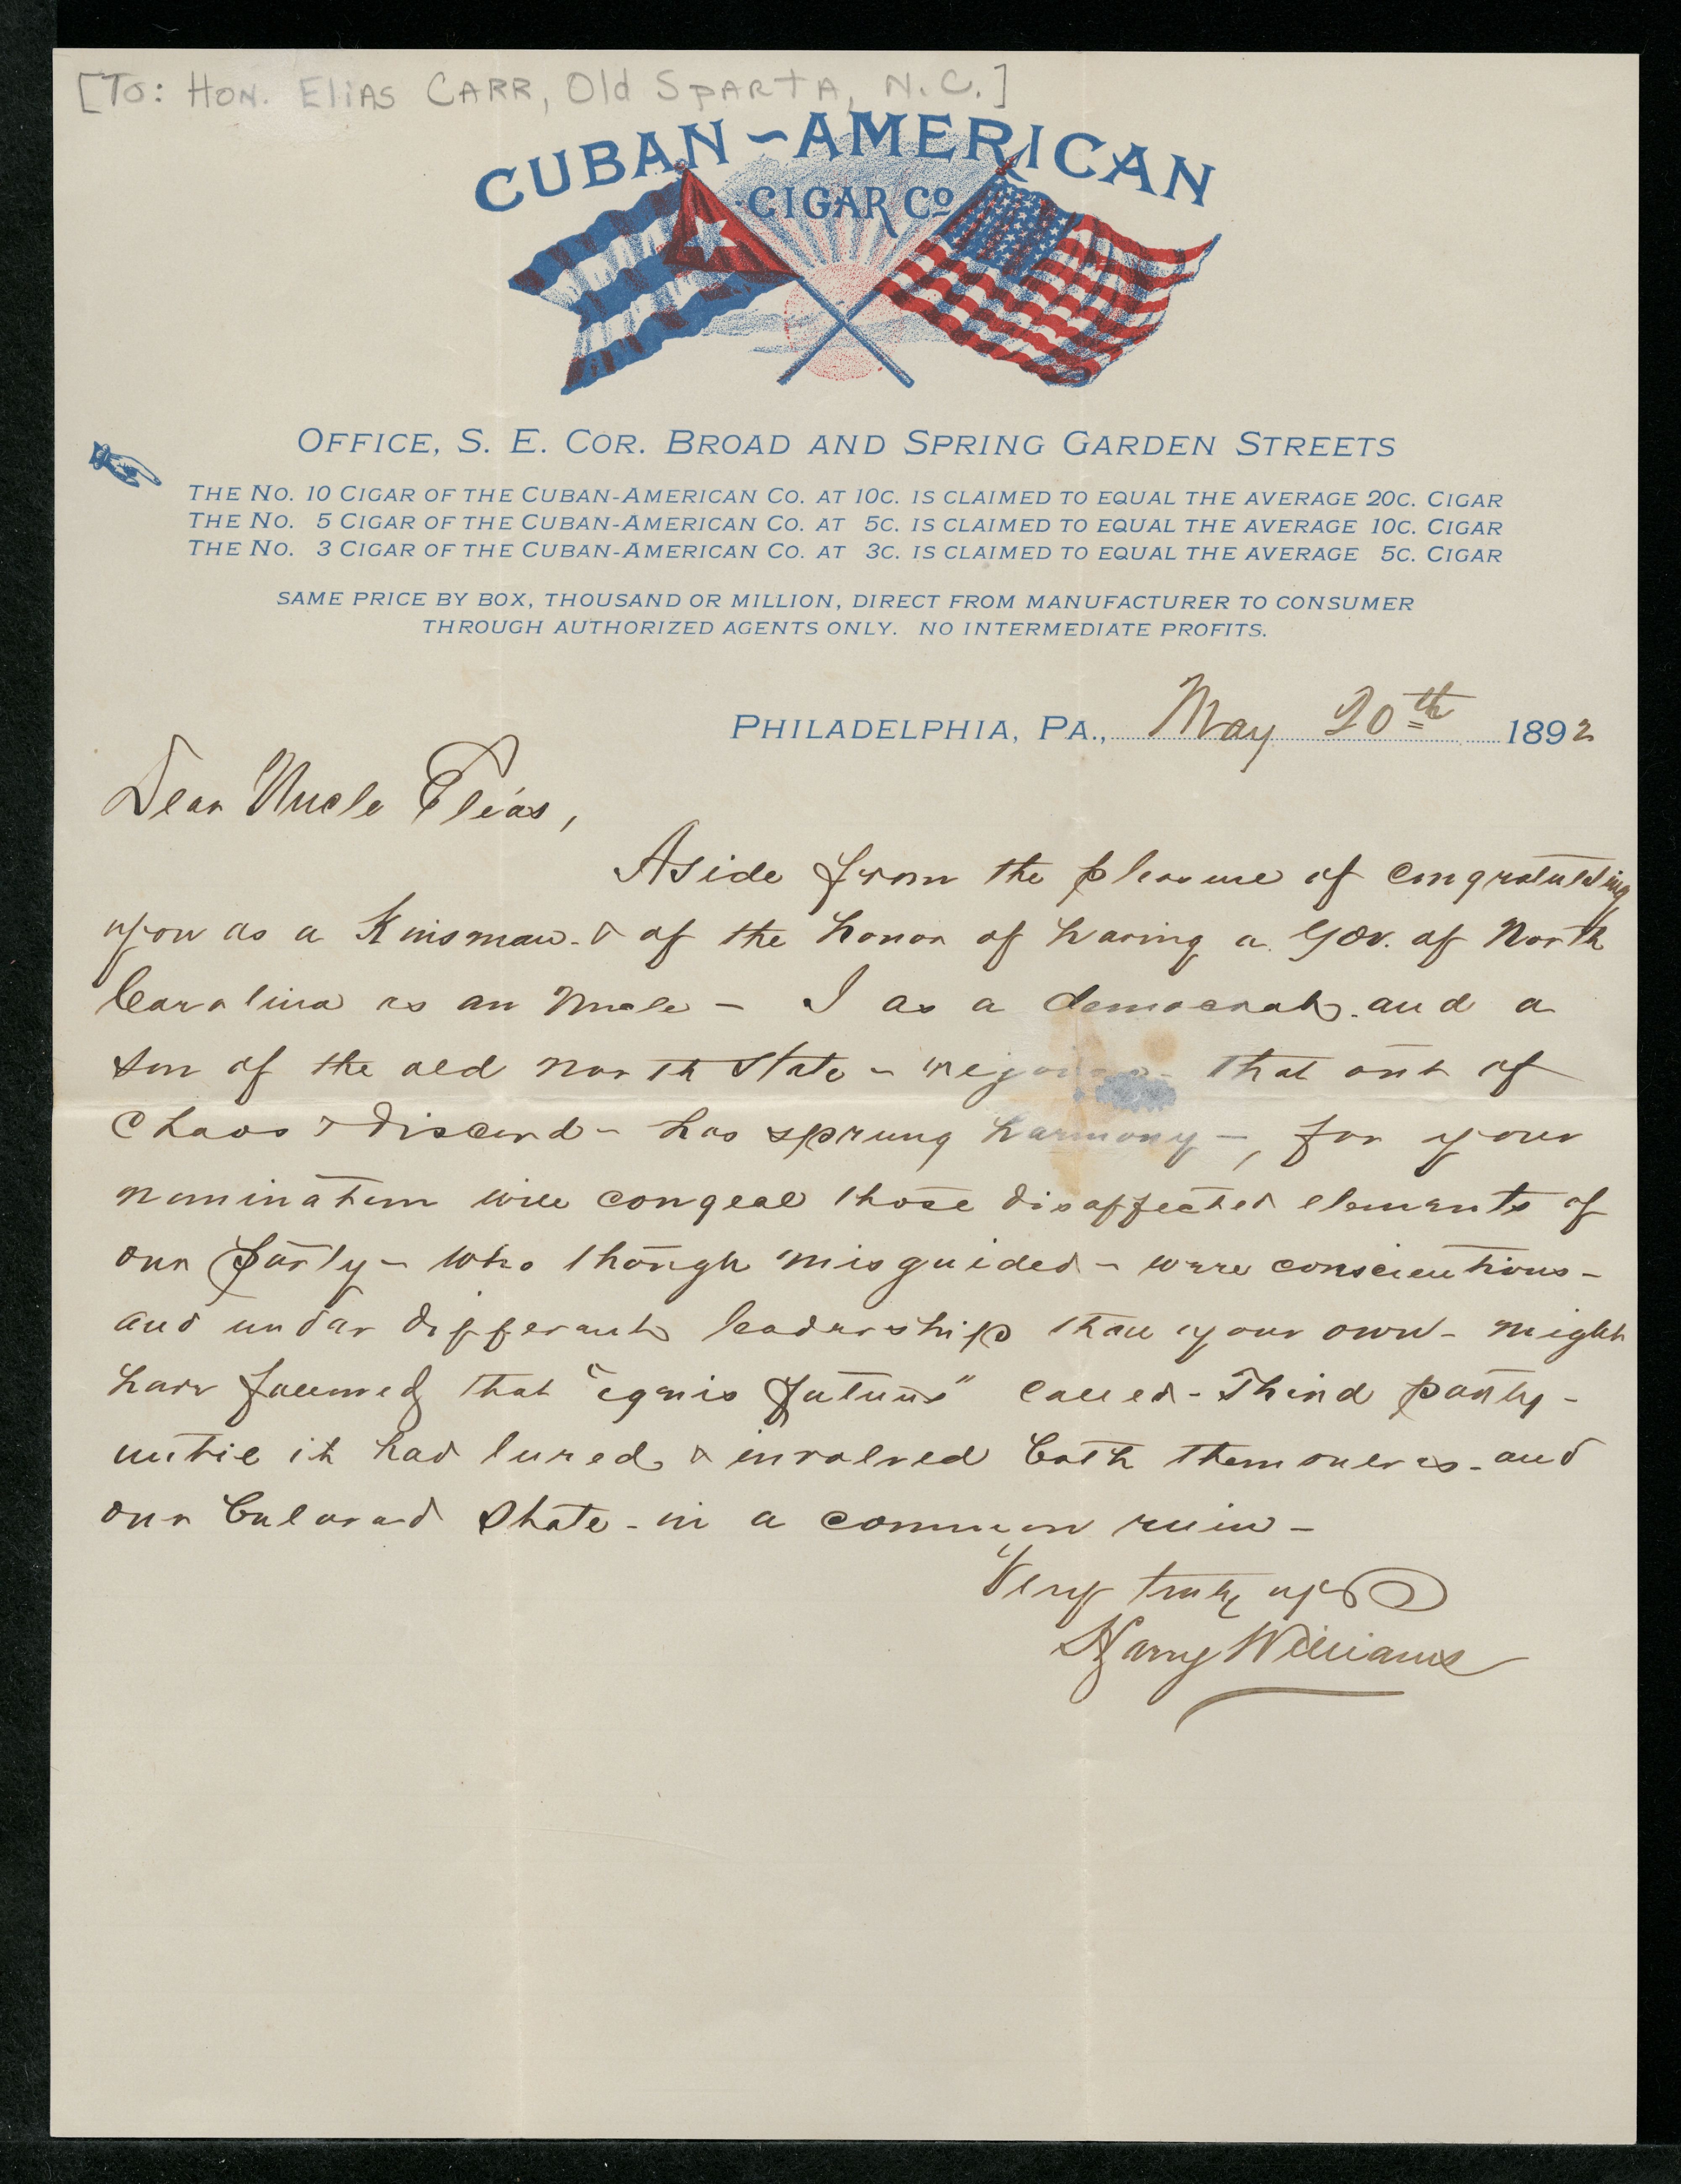 [To: Hon. Elias Carr, Old Sparta, N.C.]
CUBAN-AMERICAN
CIGAR Co
OFFICE, S. E. COR. BROAD AND SPRING GARDEN STREETS
THE NO. 10 CIGAR OF THE CUBAN-AMERICAN CO. AT 10C. IS CLAIMED TO EQUAL THE AVERAGE 20C. CIGAR
THE NO. 5 CIGAR OF THE CUBAN-AMERICAN CO. AT 5C. IS CLAIMED TO EQUAL THE AVERAGE 10C. CIGAR
THE NO. 3 CIGAR OF THE CUBAN-AMERICAN CO. AT 3C. IS CLAIMED TO EQUAL THE AVERAGE 5C. CIGAR
SAME PRICE BY BOX, THOUSAND OR MILLION, DIRECT FROM MANUFACTURER TO CONSUMER
THROUGH AUTHORIZED AGENTS ONLY. NO INTERMEDIATE PROFITS.
PHILADELPHIA, PA., May 20th 1892
Dear Uncle Elias,
Aside from the pleasure of congratulating
you as a Kinsman - & of the honor of having a Gov. of North
Carolina as an Uncle - I as a democrat - and a
son of the old North State - rejoice - that out of
Chaos & Discord - has sprung harmony -, for your
nomination will congeal those disaffected elements of
our party - who though misguided - were conscientious -
and under different leadership than your own - might
have followed that "ignis fatuus" called - Third party -
until it had lured & involved both themselves - and
our beloved State - in a common ruin -
Very truly yrs
Harry Williams